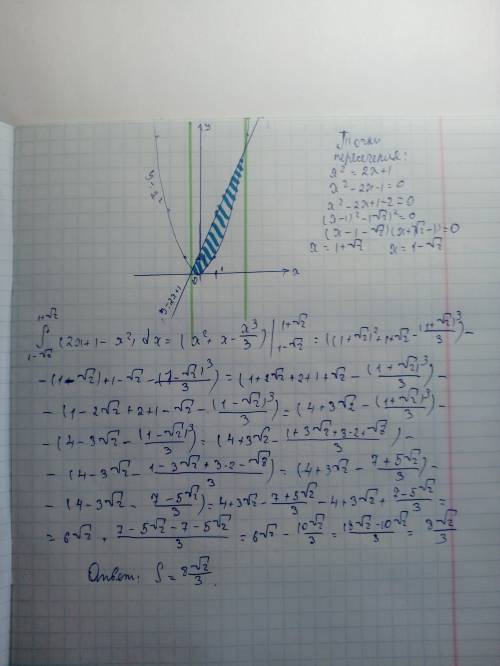 y
Точки
пересечения:
x² = 2x+1
x² - 2x - 1 = 0
x² - 2x + 1 - 2 = 0
(x-1)² - (√2)² = 0
(x - 1 - √2)(x + √2 - 1) = 0
x = 1+√2 x = 1-√2
0 1 x
y=2x+1
∫ 1-√2 1+√2 (2x+1-x²) dx = (x² + x - x³/3) | 1-√2 1+√2 = ((1+√2)² + 1+√2 - (1+√2)³/3) -
- (1-√2) + 1-√2 - (1-√2)³/3) = (1+2√2+2+1+√2 - (1+√2)³/3) -
- (1-2√2+2+1-√2 - (1-√2)³/3) = (4+3√2 - (1+√2)³/3) -
- (4-3√2 - (1-√2)³/3) = (4+3√2 - (1+3√2+3·2+√8)/3) -
- (4-3√2 - (1-3√2+3·2-√8)/3) = (4+3√2 - (7+5√2)/3) -
- (4-3√2 - (7-5√2)/3) = 4+3√2 - (7+5√2)/3 - 4+3√2 + (7-5√2)/3 =
= 6√2 + (7-5√2-7-5√2)/3 = 6√2 - 10√2/3 = (18√2-10√2)/3 = 8√2/3
Ответ: S = 8√2/3.